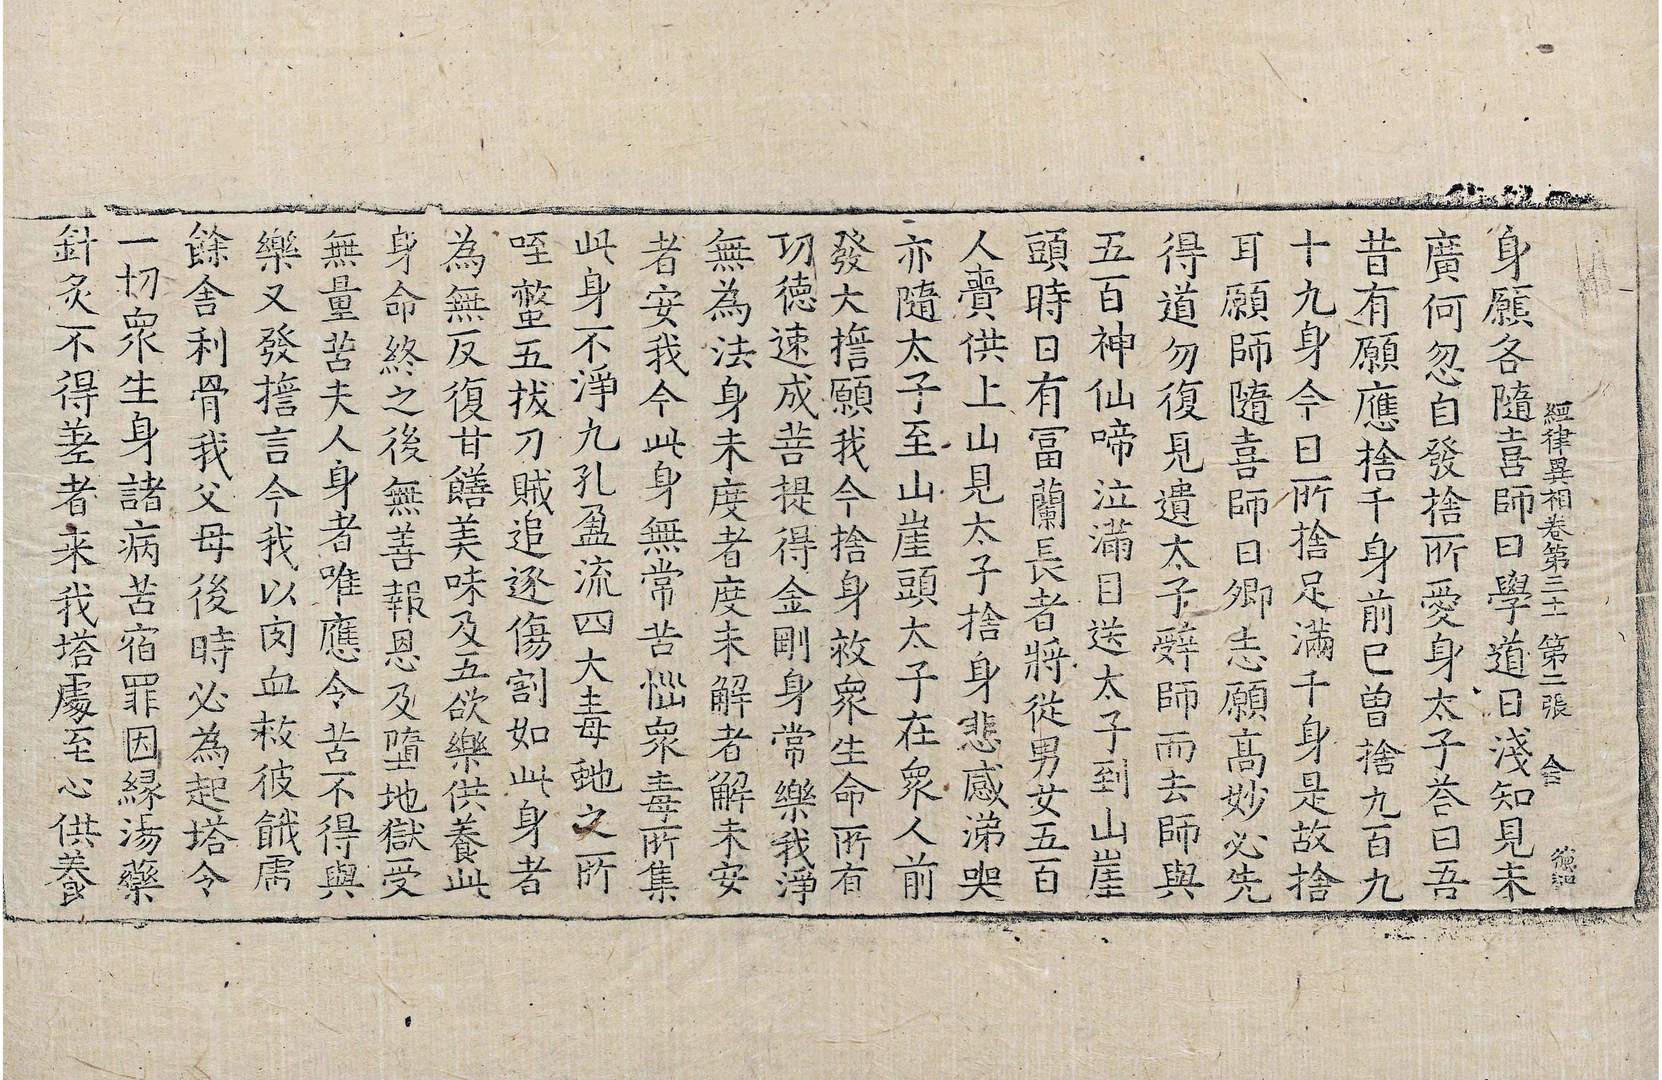 經律異相卷第三十一 第二張 㑹 德和
身願各隨喜師曰學道日淺知見未
廣何忽自發捨所愛身太子荅曰吾
昔有願應捨千身前已曾捨九百九
十九身今日所捨足滿千身是故捨
耳願師隨喜師曰卿志願高妙必先
得道勿復見遺太子辤師而去師與
五百神仙啼泣滿目送太子到山崖
頭時日有冨蘭長者將從男女五百
人賷供上山見太子捨身悲感涕哭
亦隨太子至山崖頭太子在衆人前
發大擔願我今捨身救衆生命所有
功德速成菩提得金剛身常樂我淨
無為法身未度者度未解者解未安
者安我今此身無常苦惱衆毒所集
此身不淨九孔盈流四大毒虵之所
咥螫五拔刀賊追逐傷割如此身者
為無反復甘饍美味及五欲樂供養此
身命終之後無善報恩及墮地獄受
無量苦夫人身者唯應令苦不得與
樂又發擔言今我以肉血救彼餓虎
餘舍利骨我父母後時必為起塔令
一切衆生身諸病苦宿罪因縁湯藥
針炙不得差者来我塔處至心供養